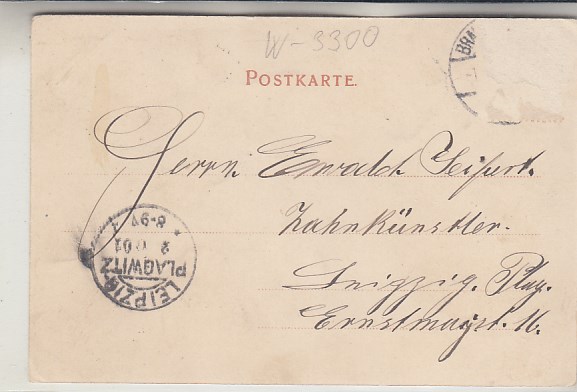 W-3300
POSTKARTE.
BRA
Herrn Ewald Seifert.
Zahnkünstler.
Leipzig. Plag.
Ernstmeyst.
LEIPZIG-
PLAGWITZ
8-9V